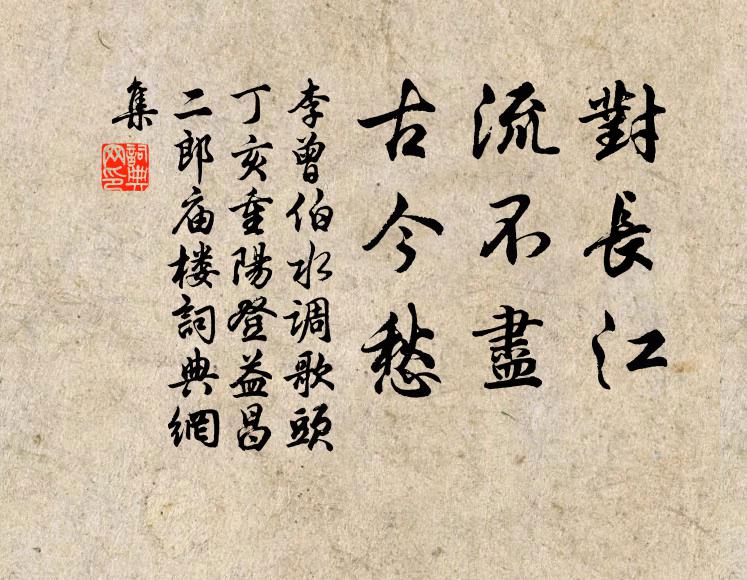 對長江
流不盡
古今愁
李曾伯水调歌頭
丁亥重陽登益昌
二郎庙楼詞典網
集
詞典网印